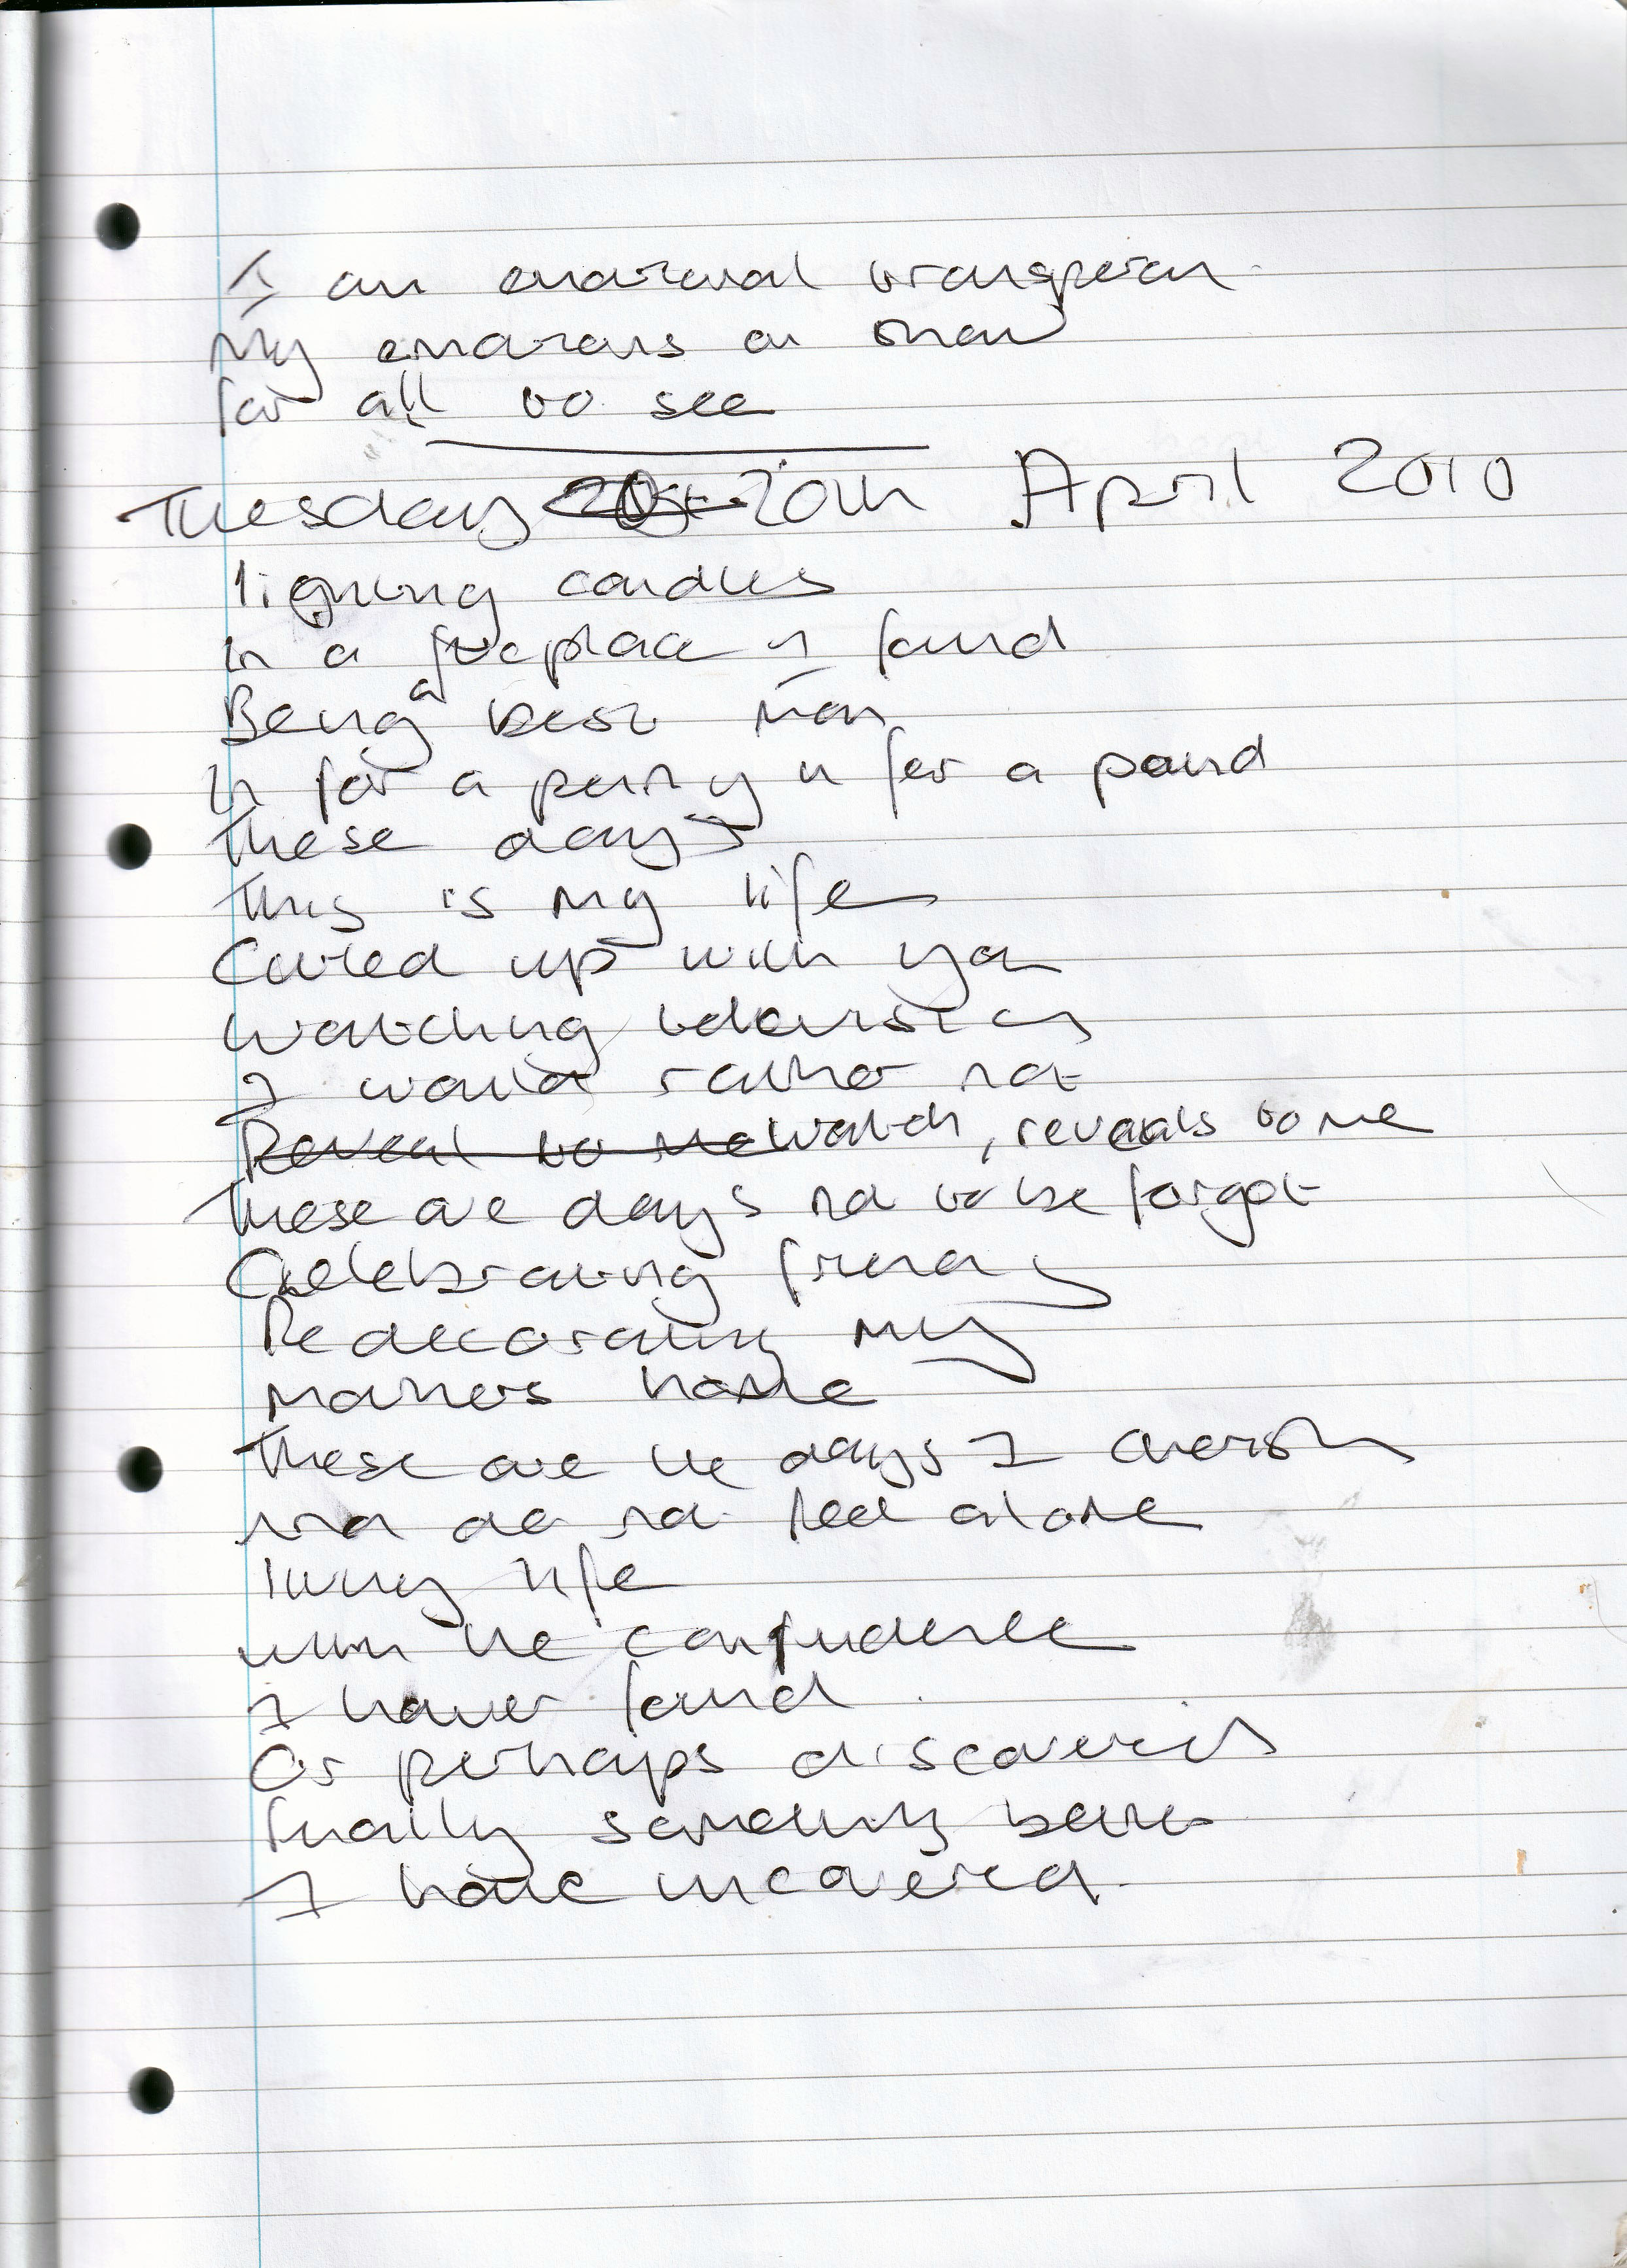 I am emotional transparent
My emotions on show
for all to see
Tuesday 20th April 2010
lighting candles
In a fireplace I found
Being a best man
In for a penny in for a pound
These days
This is my life
Curled up with you
Watching television
I would rather not
Reveal to me watch, reveals to me
These are days not to be forgot
Celebrating friendly
Redecorating my
Mothers home
These are the days I cherish
and do not feel alone
living life
with the confidence
I have found
Or perhaps discovered
finally something better
I have uncovered.